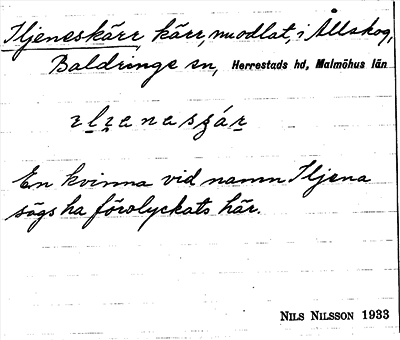 Iljeneskärr kärr, nu odlat, i Ållskog,
Baldringe sn, Herrestads hd, Malmöhus län
En kvinna vid namn Iljena
sägs ha förolyckats här.
NILS NILSSON 1933